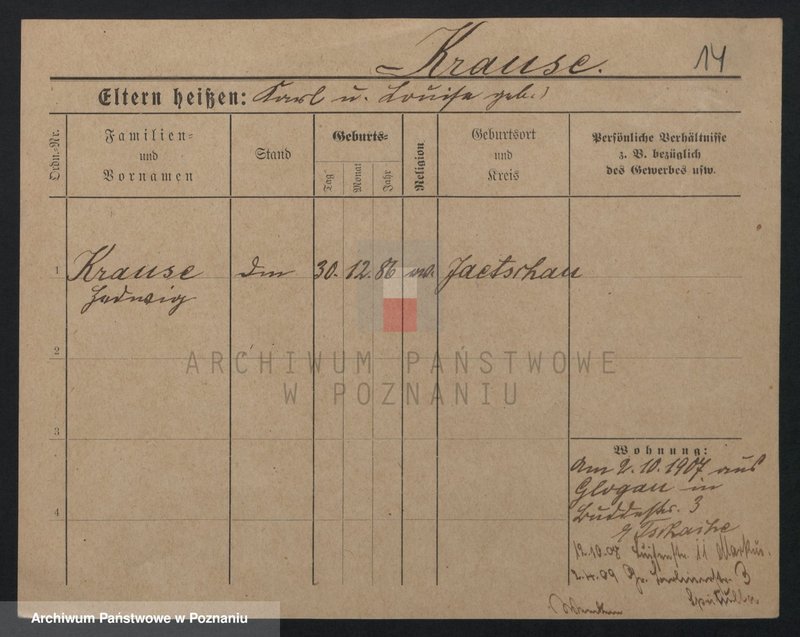 Krause. 14
Eltern heißen: Karl u. Louise geb.
Ordn.-Nr.
Familien-
und
Vornamen
Stand
Geburts-
Tag
Monat
Jahr
Religion
Geburtsort
und
Kreis
Persönliche Verhältnisse
z. B. bezüglich
des Gewerbes usw.
1 Krause 30. 12. 86 Jaetschau
Hedwig
2
ARCHIWUM PAŃSTWOWE
W POZNANIU
3
Wohnung:
Am 2.10.1907 aus
Glogau in
Buddestr. 3
4
12.10.08 Luisenstr. 11
2.4.09 3
Archiwum Państwowe w Poznaniu